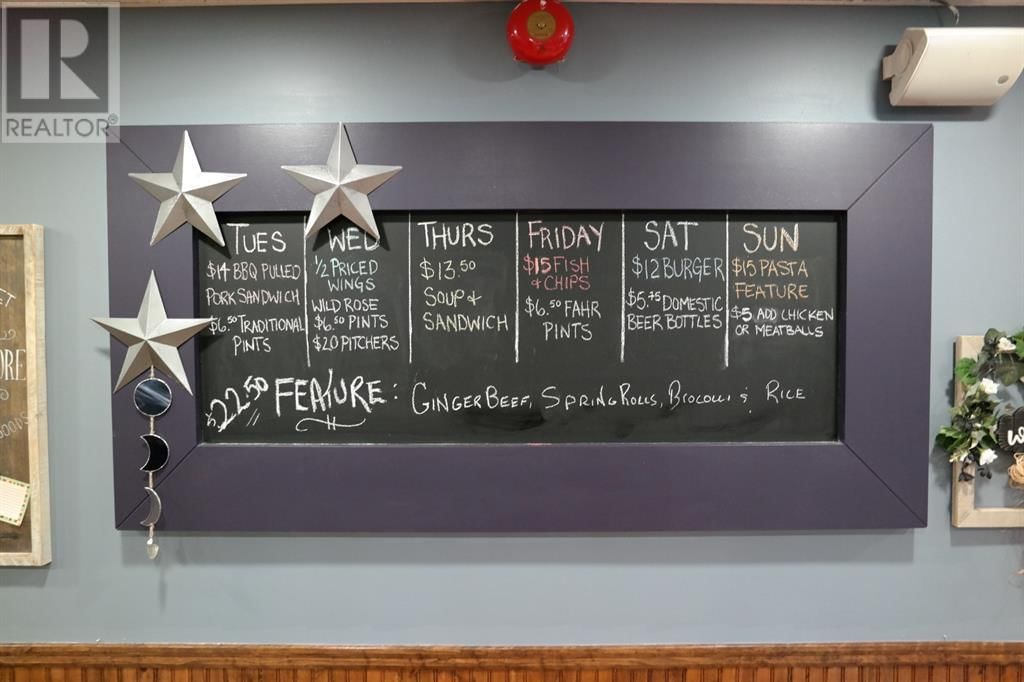 REALTOR®
TUES
$14 BBQ PULLED
PORK SANDWICH
$6.50 TRADITIONAL
PINTS
WED
1/2 PRICED
WINGS
WILD ROSE
$6.50 PINTS
$20 PITCHERS
THURS
$13.50
SOUP &
SANDWICH
FRIDAY
$15 FISH
& CHIPS
$6.50 FAHR
PINTS
SAT
$12 BURGER
$5.75 DOMESTIC
BEER BOTTLES
SUN
$15 PASTA
FEATURE
$5 ADD CHICKEN
OR MEATBALLS
$22.50 FEATURE: GINGER BEEF, SPRING ROLLS, BROCOLLI & RICE